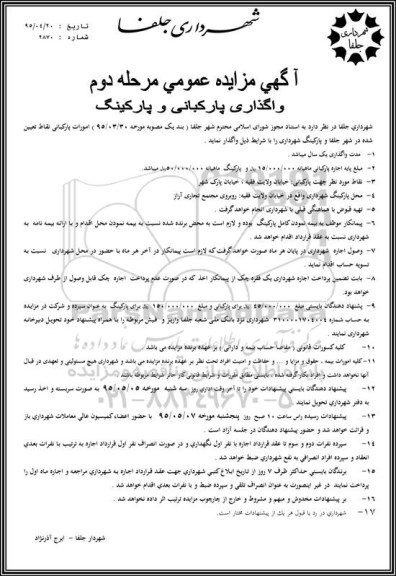 شهرداری جلفا
تاریخ : ۹۵/۰۴/۲۰
شماره : ۲۸۷۰
شهرداری جلفا
آگهي مزایده عمومي مرحله دوم
واگذاری پارکبانی و پارکینگ
شهرداري جلفا در نظر دارد به استناد مجوز شورای اسلامی محترم شهر جلفا ( بند یک مصوبه مورخه ۹۵/۰۳/۳۰ ) امورات پارکبانی نقاط تعیین
شده در شهر جلفا و پارکینگ شهرداری را با شرایط ذیل واگذار نماید .
۱- مدت واگذاری یک سال میباشد .
۲- مبلغ پایه اجاره پارکبانی ماهیانه ۱۵/۰۰۰/۰۰۰ ریال و پارکینگ ماهیانه ۵۰/۰۰۰/۰۰۰ ریال میباشد
۳- نقاط مورد نظر جهت پارکبانی خیابان ولایت فقیه ، خیابان پارک شهر
۴- محل پارکینگ شهرداری واقع در خیابان ولایت فقیه: روبروی مجتمع تجاری آراز
۵- تهیه قبوض با هماهنگی قبلی با شهرداری انجام خواهد گرفت .
۶- پیمانکار موظف به بیمه نمودن کامل پارکینگ بوده و لازم است به محض برنده شدن نسبت به بیمه نمودن محل اقدام و با ارائه بیمه نامه به
شهرداری نسبت به عقد قرارداد اقدام خواهد شد .
۷- وصول اجاره شهرداری در پایان هر ماه صورت خواهد گرفت که لازم است پیمانکار در آخر هر ماه با حضور در محل شهرداری نسبت به
تسویه حساب اقدام نماید .
۸- بابت تضمین پرداخت اجاره شهرداری یک فقره چک از پیمانکار اخذ که در صورت عدم پرداخت اجاره چک قابل وصول از طرف شهرداری
خواهد بود.
۹- پیشنهاد دهندگان بایستی مبلغ ۴۵/۰۰۰/۰۰۰ ریال برای پارکبانی و مبلغ ۱۵۰/۰۰۰/۰۰۰ ریال برای پارکینگ به عنوان سپرده و شرکت در مزایده
به حساب شماره شهرداری نزد بانک ملی شعبه جلفا واریز و فیش مربوطه را با همراه پیشنهاد خود تحویل دبیرخانه
شهرداری نمایند .
۱۰- کلیه کسورات قانونی ( مفاصا حساب بیمه و دارایی ) بر عهده برنده مزایده می باشد
۱۱- کلیه امورات بیمه ، حقوق و مزایا و ... و حفاظت و امنیت افراد تحت نظر بر عهده برنده مزایده می باشد و شهرداری هیچ مسئولیتی و تعهدی در قبال
آنها نخواهد داشت
۱۲- پیشنهاد دهندگان بایستی پیشنهادات خود را تا آخر وقت اداری روز سه شنبه مورخه ۹۵/۰۵/۰۵ به صورت سربسته و اخذ رسید
به دفتر شهرداری تحویل نمایند
۱۳- پیشنهادات رسیده راس ساعت ۱۰ صبح روز پنجشنبه مورخه ۹۵/۰۵/۰۷ با حضور اعضاء کمیسیون عالی معاملات شهرداری باز
و قرائت خواهد شد و حضور پیشنهاد دهندگان در جلسه آزاد است .
۱۴- سپرده نفرات دوم و سوم تا عقد قرارداد اجاره با نفر اول نگهداری و در صورت انصراف نفر اول قرارداد اجاره به ترتیب با نفرات بعدی
انعقاد و سپرده افراد انصرافی به نفع شهرداری ضبط خواهد شد .
۱۵- برندگان بایستی حداکثر ظرف ۷ روز از تاریخ ابلاغ کتبی شهرداری جهت عقد قرارداد اجاره به شهرداری مراجعه و اجاره ماه اول را
پرداخت نمایند در غیر اینصورت به عنوان انصراف تلقی و سپرده ضبط و با نفرات بعدی اقدام خواهد شد .
۱۶- بر پیشنهادات مخدوش و مبهم و مشروط و خارج از چارچوب مزایده ترتیب اثر داده نخواهد شد .
۱۷- شهرداری در رد یا قبول هر یک از پیشنهادات مختار است.
شهردار جلفا - ایرج آذرنژاد
ParsNamadData
۰۲۱-۸۸۳۴۹۶۷۰-۵